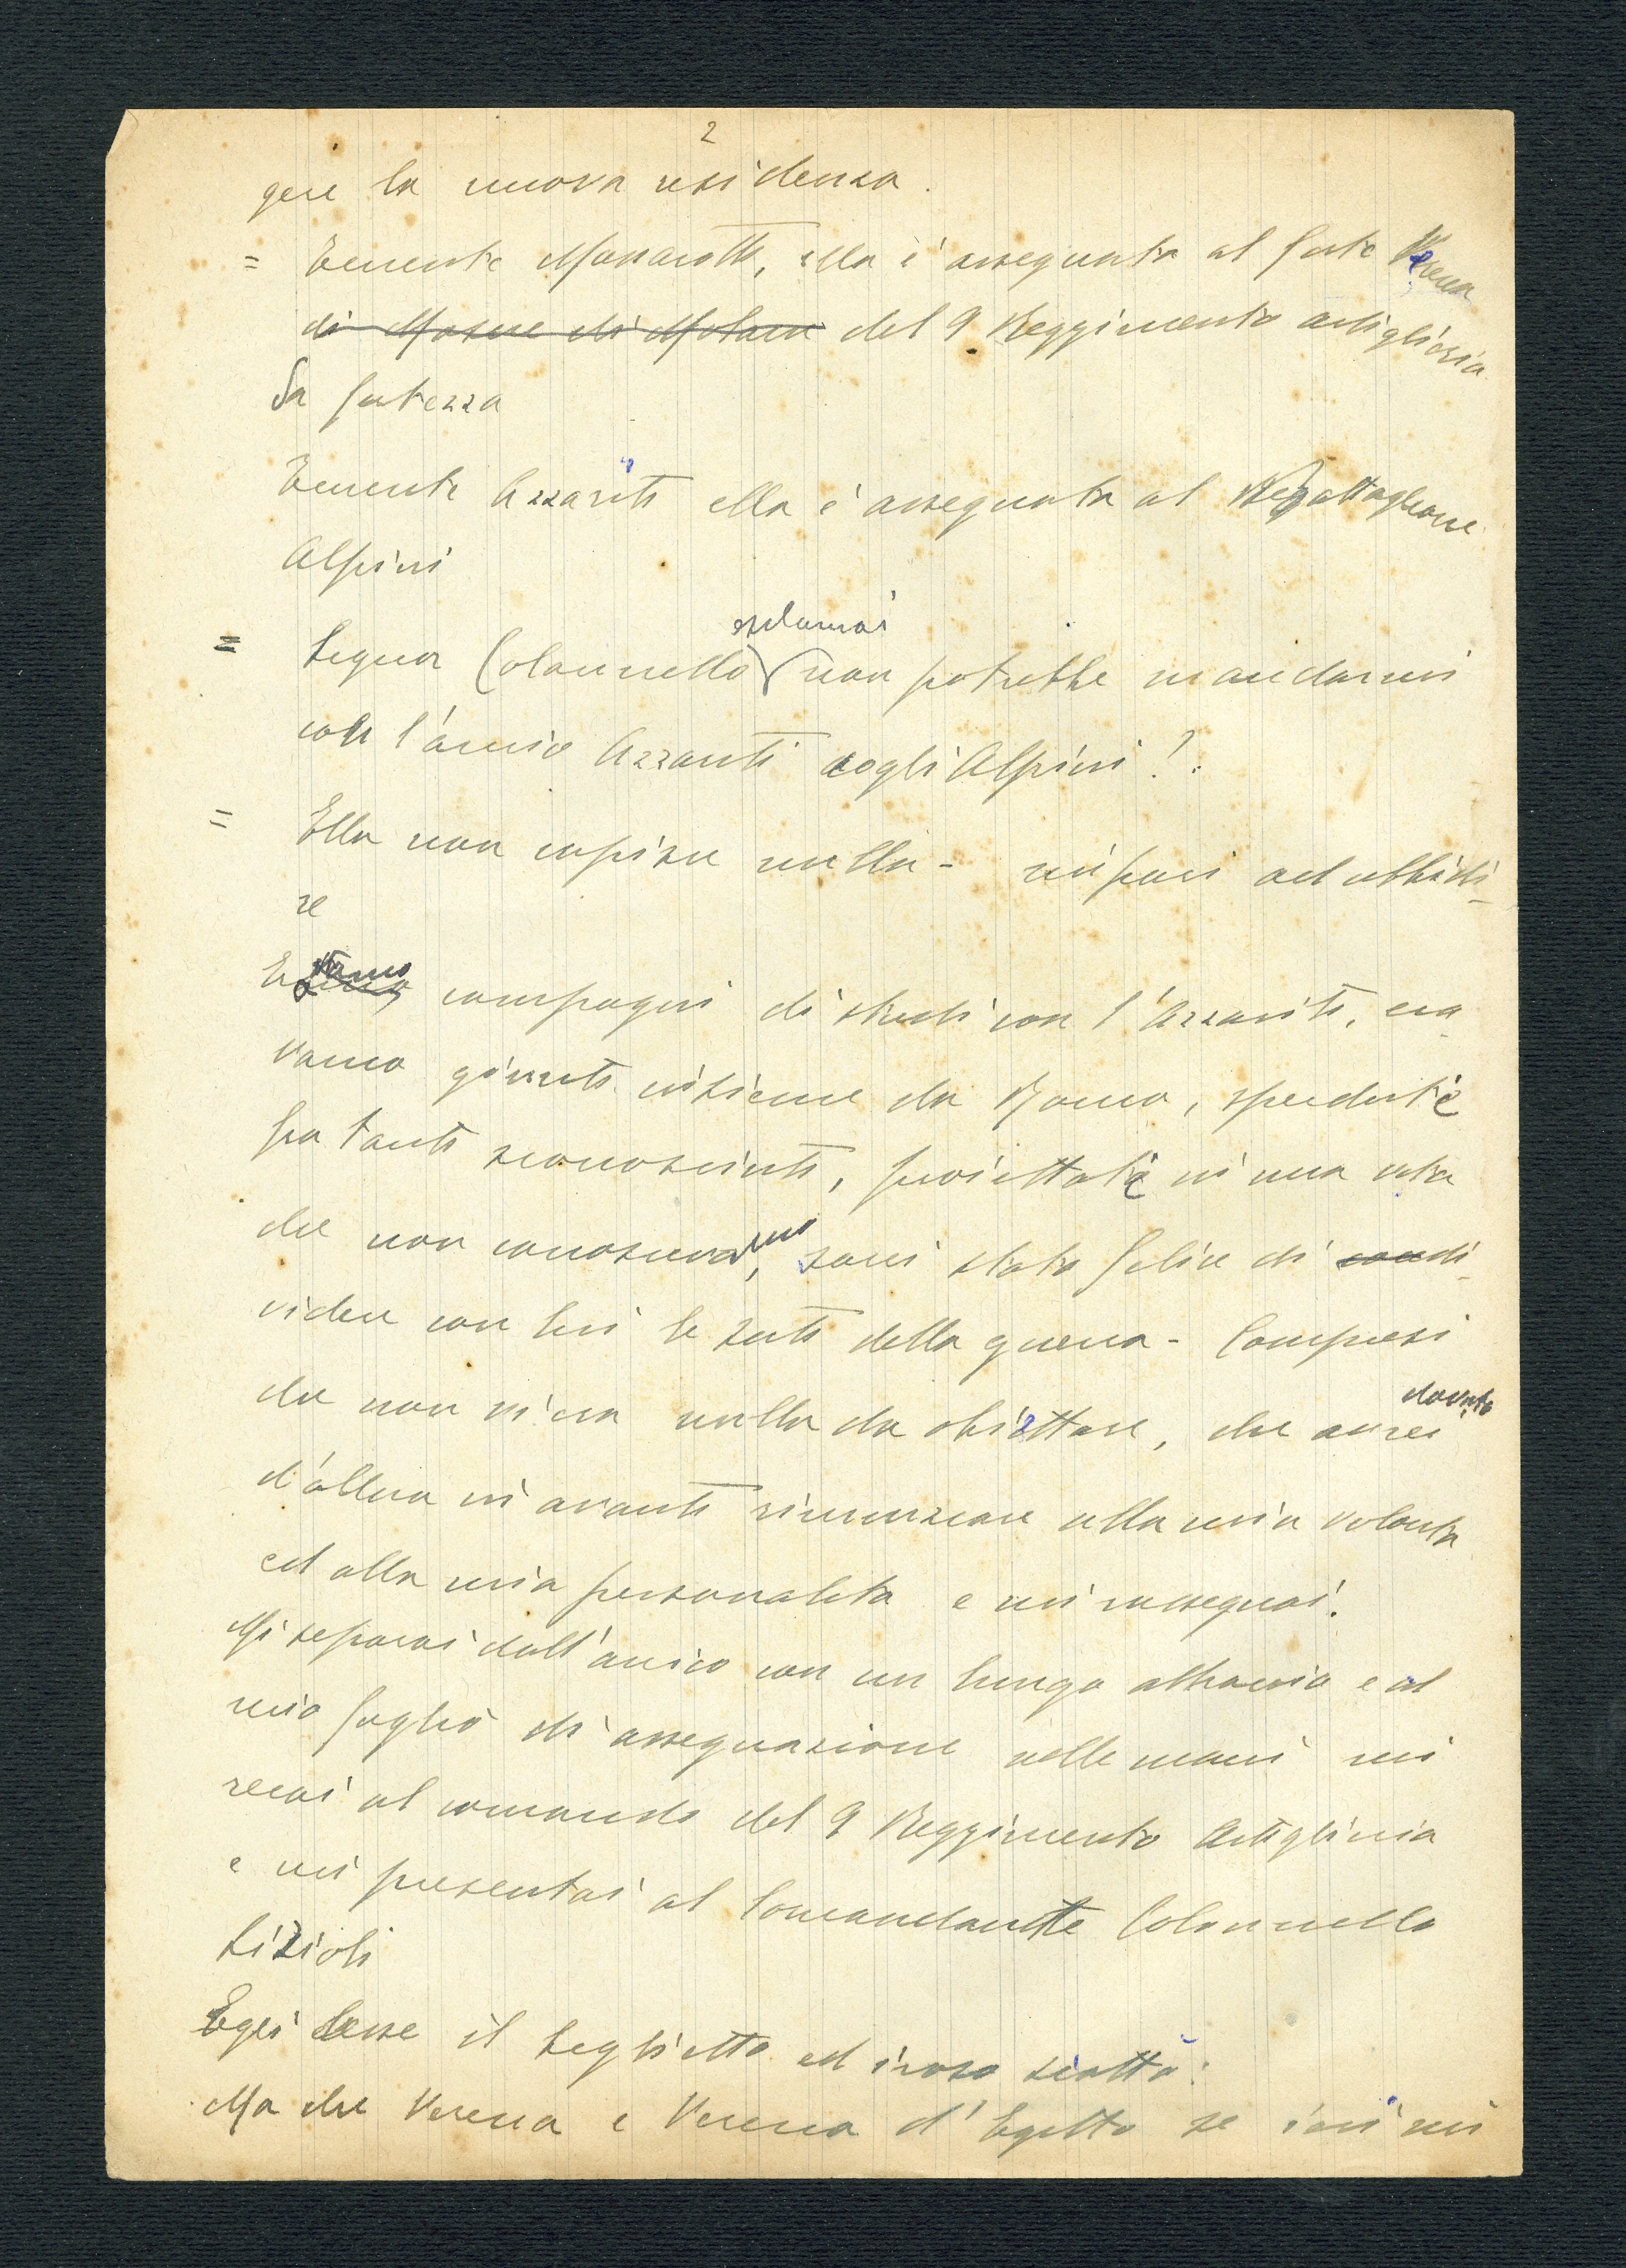 2
gere la nuova residenza.
= Tenente Massarotti, ella è assegnata al forte Verena
di del 9 Reggimento artiglieria
Da fortezza
Tenente Azzariti ella è assegnata al Battaglione
Alpini
esclamai
= Signor Colonnello non potrebbe mandarmi
con l'amico Azzariti cogli Alpini?
= Ella non capisce nulla - impari ad ubbidi-
re
Eravamo compagni di studi con l'Azzariti, era-
vamo giunti insieme da Roma, sperduti
fra tanti sconosciuti, proiettati in una vita
che non conoscevamo, sarei stato felice di condi-
videre con lui le sorti della guerra - Compresi
che non vi era nulla da obiettare, che avrei dovuto
d'allora in avanti rinunziare alla mia volonta
ed alla mia personalita e mi rassegnai.
Mi separai dall'amico con un lungo abbraccio e col
mio foglio di assegnazione nelle mani mi
recai al comando del 9 Reggimento Artiglieria
e mi presentai al Comandante Colonnello
Egli lesse il foglietto ed iroso scattò:
Ma che Verena e Verena d'Egitto se ieri mi